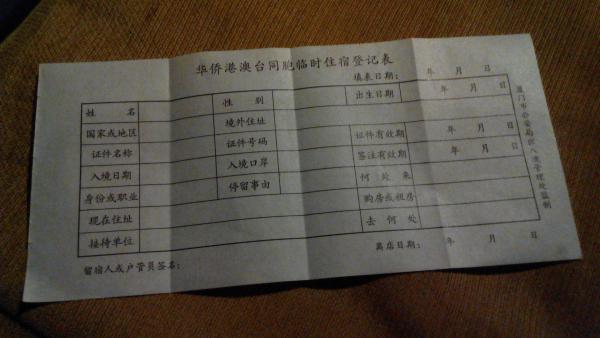 华侨港澳台同胞临时住宿登记表
填表日期： 年 月 日
姓 名 性 别 出生日期 年 月 日
国家或地区 境外住址
证件名称 证件号码 证件有效期 年 月 日
入境日期 入境口岸 签注有效期 年 月 日
身份或职业 停留事由 何 处 来
现在住址 购房或租房
接待单位 去 何 处
留宿人或户管员签名： 离店日期： 年 月 日
厦门市公安局出入境管理处监制